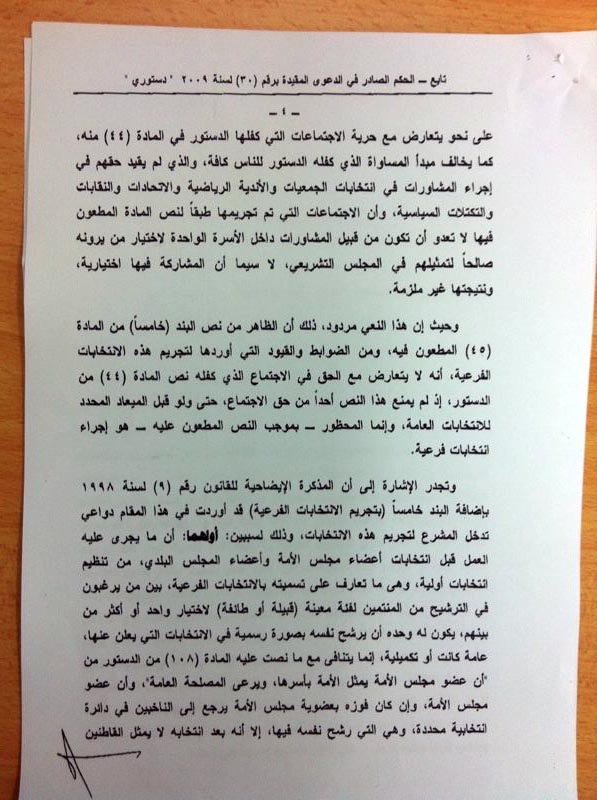 تابع – الحكم الصادر في الدعوى المقيدة برقم (٣٠) لسنة ٢٠٠٩ " دستوري "
– ٤ –
على نحو يتعارض مع حرية الاجتماعات التي كفلها الدستور في المادة (٤٤) منه،
كما يخالف مبدأ المساواة الذي كفله الدستور للناس كافة، والذي لم يقيد حقهم في
إجراء المشاورات في انتخابات الجمعيات والأندية الرياضية والاتحادات والنقابات
والتكتلات السياسية، وأن الاجتماعات التي تم تجريمها طبقاً لنص المادة المطعون
فيها لا تعدو أن تكون من قبيل المشاورات داخل الأسرة الواحدة لاختيار من يرونه
صالحاً لتمثيلهم في المجلس التشريعي، لا سيما أن المشاركة فيها اختيارية،
ونتيجتها غير ملزمة.
وحيث إن هذا النعي مردود، ذلك أن الظاهر من نص البند (خامساً) من المادة
(٤٥) المطعون فيه، ومن الضوابط والقيود التي أوردها لتجريم هذه الانتخابات
الفرعية، أنه لا يتعارض مع الحق في الاجتماع الذي كفله نص المادة (٤٤) من
الدستور، إذ لم يمنع هذا النص أحداً من حق الاجتماع، حتى ولو قبل الميعاد المحدد
للانتخابات العامة، وإنما المحظور – بموجب النص المطعون عليه – هو إجراء
انتخابات فرعية.
وتجدر الإشارة إلى أن المذكرة الإيضاحية للقانون رقم (٩) لسنة ١٩٩٨
بإضافة البند خامساً (بتجريم الانتخابات الفرعية) قد أوردت في هذا المقام دواعي
تدخل المشرع لتجريم هذه الانتخابات، وذلك لسببين: أولهما: أن ما يجرى عليه
العمل قبل انتخابات أعضاء مجلس الأمة وأعضاء المجلس البلدي، من تنظيم
انتخابات أولية، وهى ما تعارف على تسميته بالانتخابات الفرعية، بين من يرغبون
في الترشيح من المنتمين لفئة معينة (قبيلة أو طائفة) لاختيار واحد أو أكثر من
بينهم، يكون له وحده أن يرشح نفسه بصورة رسمية في الانتخابات التي يعلن عنها،
عامة كانت أو تكميلية، إنما يتنافى مع ما نصت عليه المادة (١٠٨) من الدستور من
"أن عضو مجلس الأمة يمثل الأمة بأسرها، ويرعى المصلحة العامة"، وأن عضو
مجلس الأمة، وإن كان فوزه بعضوية مجلس الأمة يرجع إلى الناخبين في دائرة
انتخابية محددة، وهي التي رشح نفسه فيها، إلا أنه بعد انتخابه لا يمثل القاطنين